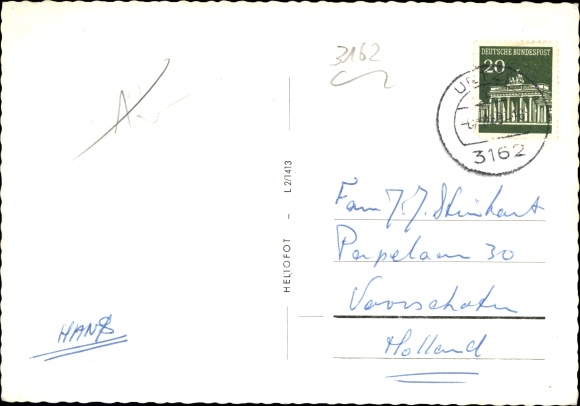 3162
DEUTSCHE BUNDESPOST
20
3162
HELIOFOT – L 2/1413
Fam J. J. Steinhart
Papelaan 30
Voorschoten
Holland
HANS